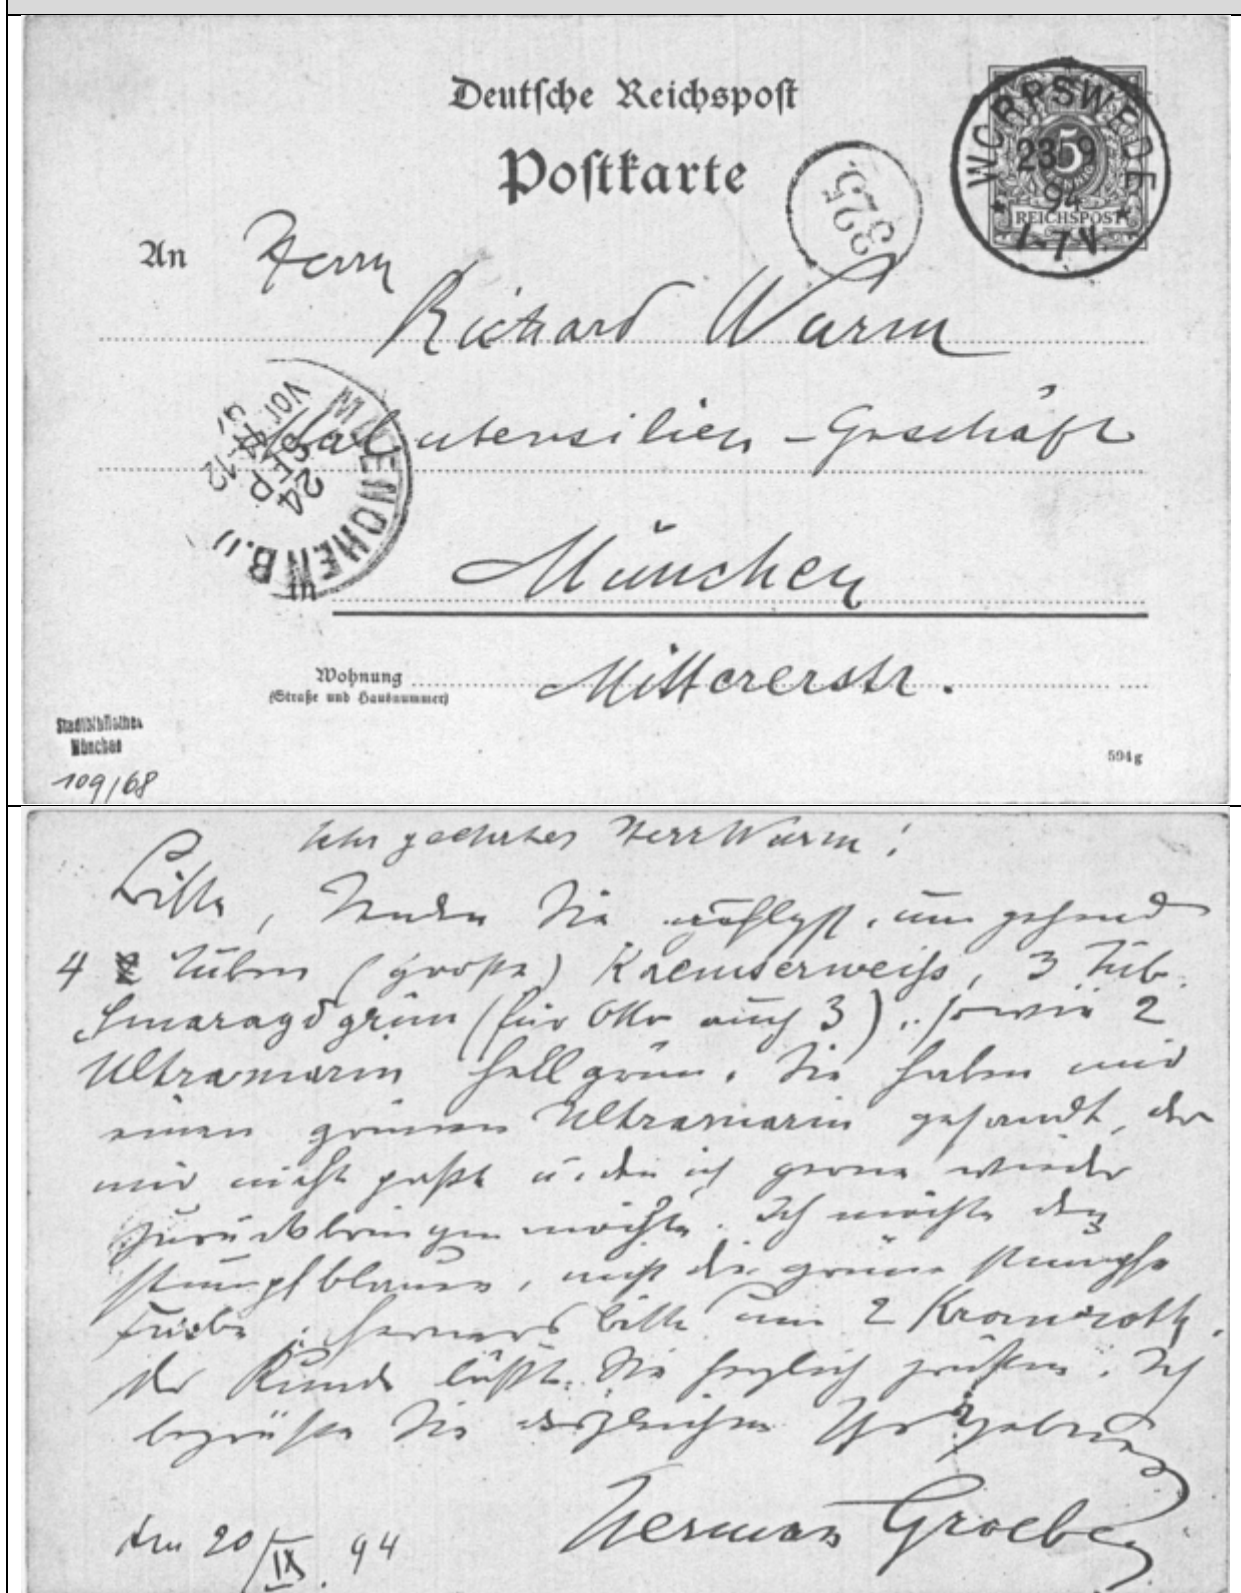 Deutsche Reichspost
Postkarte
WORPSWEDE
23 9
94
1-7 V.
5
REICHSPOST
325
An Herrn
Richard Wurm
Malutensilien-Geschäft
MUENCHEN B.II
24
SEP.
VOR
11-12
München
Wohnung
(Straße und Hausnummer)
Mittererstr.
Stadtbibliothek
München
109/68
594g
Sehr geehrter Herr Wurm!
Bitte, senden Sie umgehend
4 Tuben (große) Kremserweiss, 3 Tub.
Smaragdgrün (für Otto auch 3), sowie 2
Ultramarin hellgrün. Sie haben mir
einen grünen Ultramarin gesandt, der
mir nicht paßt u. den ich gerne wieder
zurückbringen möchte. Ich möchte den
stumpfblauen, nicht die grüne stumpfe
Farbe; ferners bitte um 2 Kromroth.
Der Kunde läßt Sie herzlich grüßen. Ich
begrüße Sie desgleichen Ihr ergebener
Herman Groeber
den 20/IX. 94